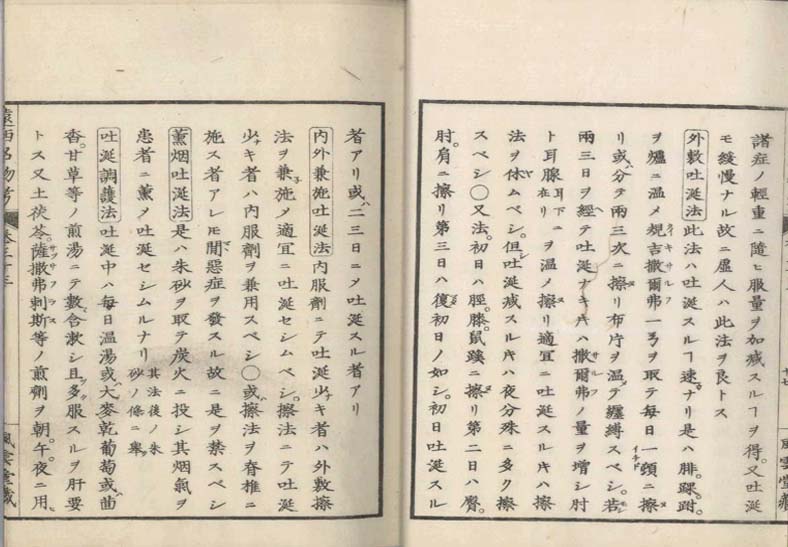 諸症ノ輕重ニ隨ヒ服量ヲ加減スルヿヲ得。又吐涎
モ緩慢ナル故ニ虛人ハ此法ヲ良トス
外敷吐涎法 此法ハ吐涎スルヿ速ナリ是ハ腓。踝。跗。
ヲ爐ニ温メ 吉撒爾弗一ヲ取テ每日一頭ニ擦
リ或ハ分テ兩三次ニ擦リ布片ヲ温テ纏縛スベシ。若シ
兩三日ヲ經テ吐涎ナキ片ハ撒爾弗ノ量ヲ增シ肘
ト耳腺耳下ニ在リヲ温メ擦リ適宜ニ吐涎スル片ハ擦
法ヲ休ムベシ。但吐涎減スル片ハ夜分殊ニ多ク擦
スベシ〇又法。初日ハ脛。膝。鼠蹊ニ擦リ第二日ハ臀。
肘。肩ニ擦リ第三日ハ復初日ノ如シ。初日吐涎スル
十七
風雲堂藏
者アリ或ハ二三日ニメ吐涎スル者アリ
内外兼施吐涎法 内服劑ニテ吐涎少キ者ハ外敷擦
法ヲ兼施メ適宜ニ吐涎セシムベシ。擦法ニテ吐涎
少キ者ハ内服劑ヲ兼用スベシ〇或ハ擦法ヲ脊椎ニ
施ス者アレ𪜈間惡症ヲ發スル故ニ是ヲ禁スベシ
薰烟吐涎法 是ハ朱砂ヲ取テ炭火ニ投シ其烟氣ヲ
患者ニ薰メ吐涎セシムルナリ 其法後ノ朱砂ノ條ニ擧
吐涎調護法 吐涎中ハ每日温湯或ハ大麥乾葡萄或ハ茴
香。甘草等ノ煎湯ニテ數含漱シ且多服スルヲ肝要
トス又土茯苓。薩撒弗刺斯等ノ煎劑ヲ朝。午。夜ニ用
遠西名物考
卷三十三
風雲堂藏